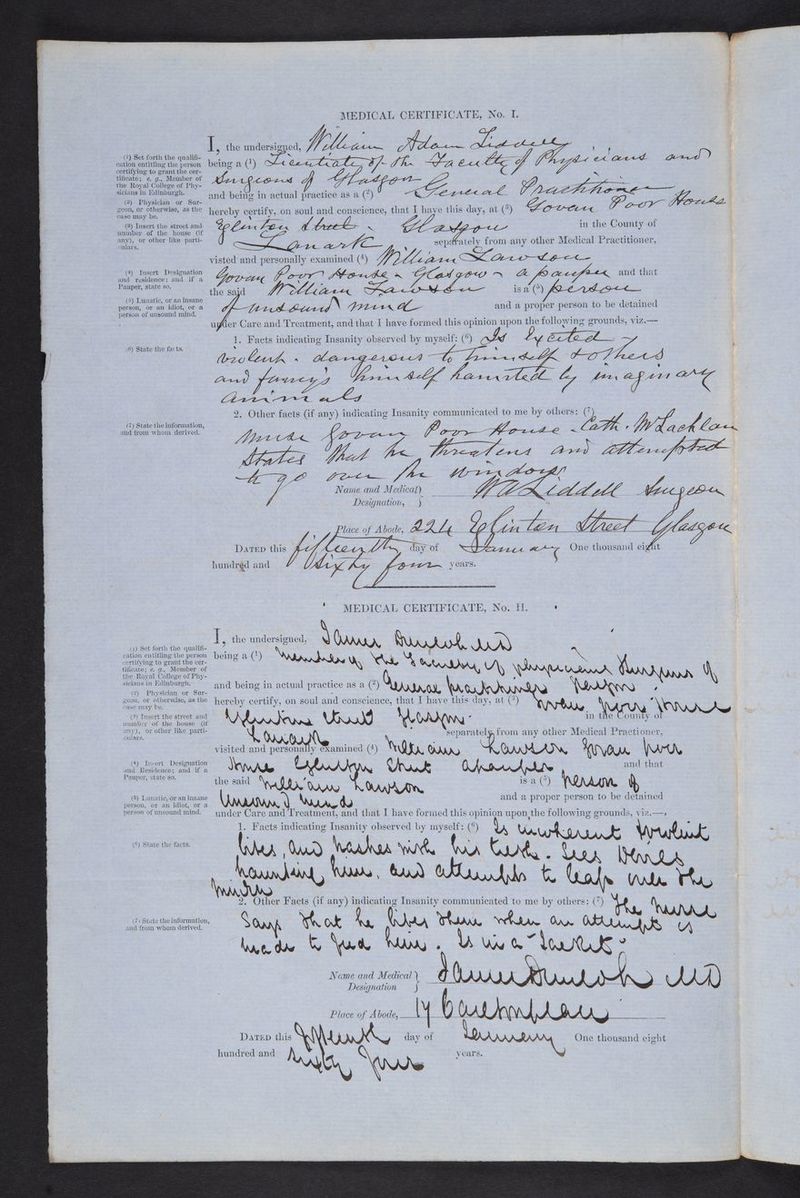 MEDICAL CERTIFICATE, No. I.
I, the undersigned, William Adam Liddell
(1) Set forth the qualifi-
cation entitling the person
certifying to grant the cer-
tificate; e. g., Member of
the Royal College of Phy-
sicians in Edinburgh.
being a (1) Licentiate of the Faculty of Physicians and
Surgeons of Glasgow
(2) Physician or Sur-
geon, or otherwise, as the
case may be.
and being in actual practice as a (2) General Practitioner
hereby certify, on soul and conscience, that I have this day, at (3) Govan Poor House
(3) Insert the street and
number of the house (if
any), or other like parti-
culars.
Eglinton Street - Glasgow in the County of
Lanark separately from any other Medical Practitioner,
visted and personally examined (4) William Lawson
(4) Insert Designation
and residence; and if a
Pauper, state so.
Govan Poor House - Glasgow - a pauper and that
the said William Lawson is a (5) person
(5) Lunatic, or an insane
person, or an idiot, or a
person of unsound mind.
of unsound mind and a proper person to be detained
under Care and Treatment, and that I have formed this opinion upon the following grounds, viz.—
(6) State the facts.
1. Facts indicating Insanity observed by myself: (6) Is Excited
violent - dangerous to himself & others
and fancy's himself haunted by imaginary
animals
2. Other facts (if any) indicating Insanity communicated to me by others: (7)
(7) State the information,
and from whom derived.
Nurse Govan Poor House - Cath. McLachlan
States that he threatens and attempted
to go over the windows
Name and Medical Designation, } W A Liddell Surgeon
Place of Abode, 224 Eglinton Street Glasgow
DATED this fifteenth day of January One thousand eight
hundred and Sixty four years.
MEDICAL CERTIFICATE, No. II.
I, the undersigned, James Dunloh MD
(1) Set forth the qualifi-
cation entitling the person
certifying to grant the cer-
tificate; e. g., Member of
the Royal College of Phy-
sicians in Edinburgh.
being a (1) Member of the Faculty of physicians & surgeons of
(2) Physician or Sur-
geon, or otherwise, as the
case may be.
and being in actual practice as a (2) General practitioner Glasgow
hereby certify, on soul and conscience, that I have this day, at (3) Govan poor House
(3) Insert the street and
number of the house (if
any), or other like parti-
culars.
Eglinton Street Glasgow in the County of
Lanark separately from any other Medical Practioner,
visited and personally examined (4) William Lawson Govan poor
(4) Insert Designation
and Residence; and if a
Pauper, state so.
House Eglinton Street a pauper and that
the said William Lawson is a (5) person of
(5) Lunatic, or an insane
person, or an idiot, or a
person of unsound mind.
Unsound mind and a proper person to be detained
under Care and Treatment, and that I have formed this opinion upon the following grounds, viz.—,
(6) State the facts.
1. Facts indicating Insanity observed by myself: (6) Is incoherent & violent
bites, and gnashes with his teeth. Sees Devils
haunting him. and attempts to leap over the
window
2. Other Facts (if any) indicating Insanity communicated to me by others: (7) The Nurse
(7) State the information,
and from whom derived.
Says that he bites them when an attempt is
made to feed him. Is in a "Jacket"
Name and Medical Designation } James Dunloh MD
Place of Abode, 17 Carlton place
DATED this fifteenth day of January One thousand eight
hundred and Sixty four years.